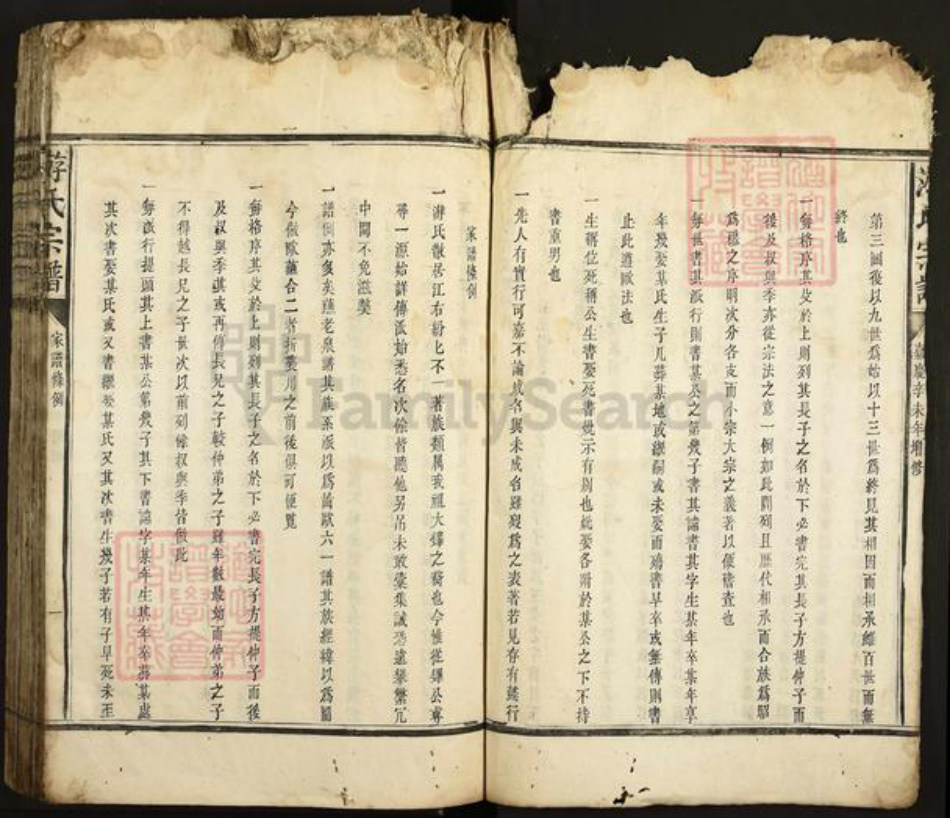 第三圖後以九世爲始以十三世爲終見其相因而相承繩百世而無
終也
一每格序其父於上則列其長子之名於下必書完其長子方提仲子而
後及叔與季亦從宗法之意一例如此間列且歷代相承而合族爲昭
爲穆之序明次分各支而小宗大宗之義者以便稽查也
一每世書其派行則書某公之第幾子書其諱書其字生某年卒某年享
年幾娶某氏生子几葬某地或繼嗣或未娶而殤書早卒或無傳則書
止此遵歐法也
一生稱位死稱公生書娶死書妣示有别也妣娶各附於某公之下不持
書重男也
一先人有實行可嘉不論成名與未成名雖寢爲之表著若見存有懿行
游氏宗譜
嘉慶辛未年增修
家譜條例
一游氏散居江右紛匕不一著族類属我祖大
之裔也今惟從
公專
尋一源始詳傳派始悉名次餘皆聽他另吊未敢彙集誠恐遠
繁冗
中間不免滋獘
一譜例亦多矣蘓老泉譜其族系派以爲
歐六一譜其族經緯以爲圖
今倣歐蘓合二者折衷用之前後俱可便覽
一每格序其父於上則列其長子之名於下必書完長子方提仲子而後
及叔與季或再傳長兄之子較仲弟之子雖年數最幼而仲弟之子
不得越長兄之子世次以前列餘叔與季皆倣此
一每派行提頭其上書某公第幾子其下書諱字某年生某年卒葬某處
其次書娶某氏或又書繼娶某氏又其次書生幾子若有子早死未至
游氏宗譜
家譜條例
一
FamilySearch